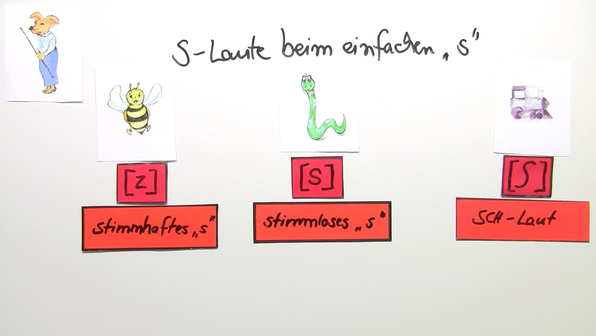 S-Laute beim einfachen „s"
[z]
[s]
[ʃ]
stimmhaftes „s"
stimmloses „s"
SCH-Laut